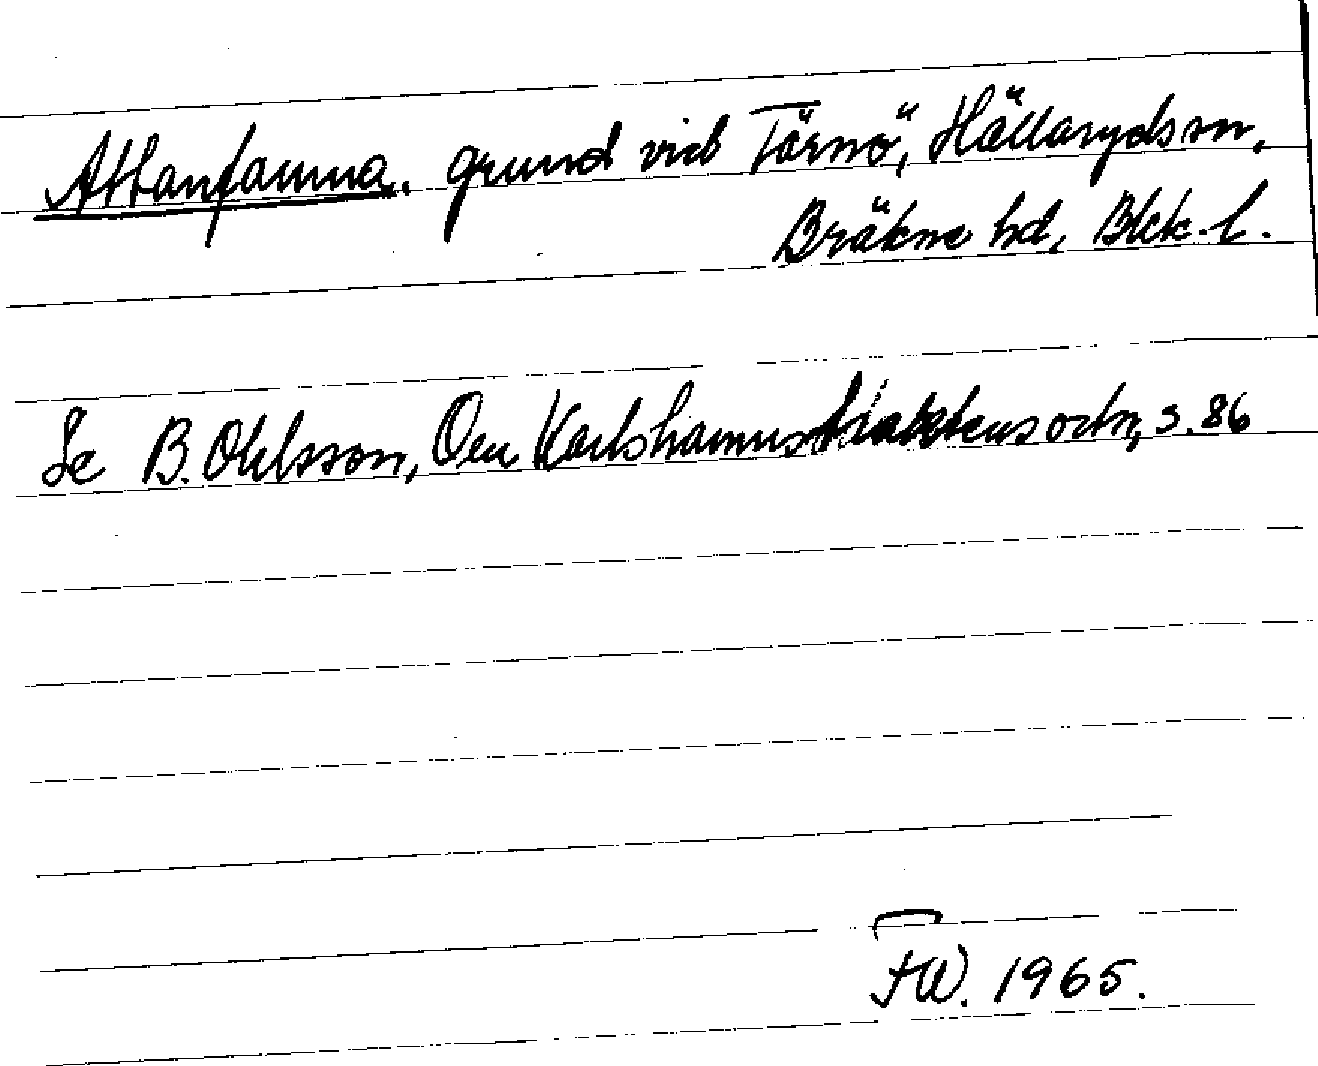 Attanfamna. grund vid Tärnö, Hällaryds sn,
Bräkne hd, Blek. l.
Se B. Ohlsson, Om Karlshamnstraktens ortn, s. 86
FW. 1965.